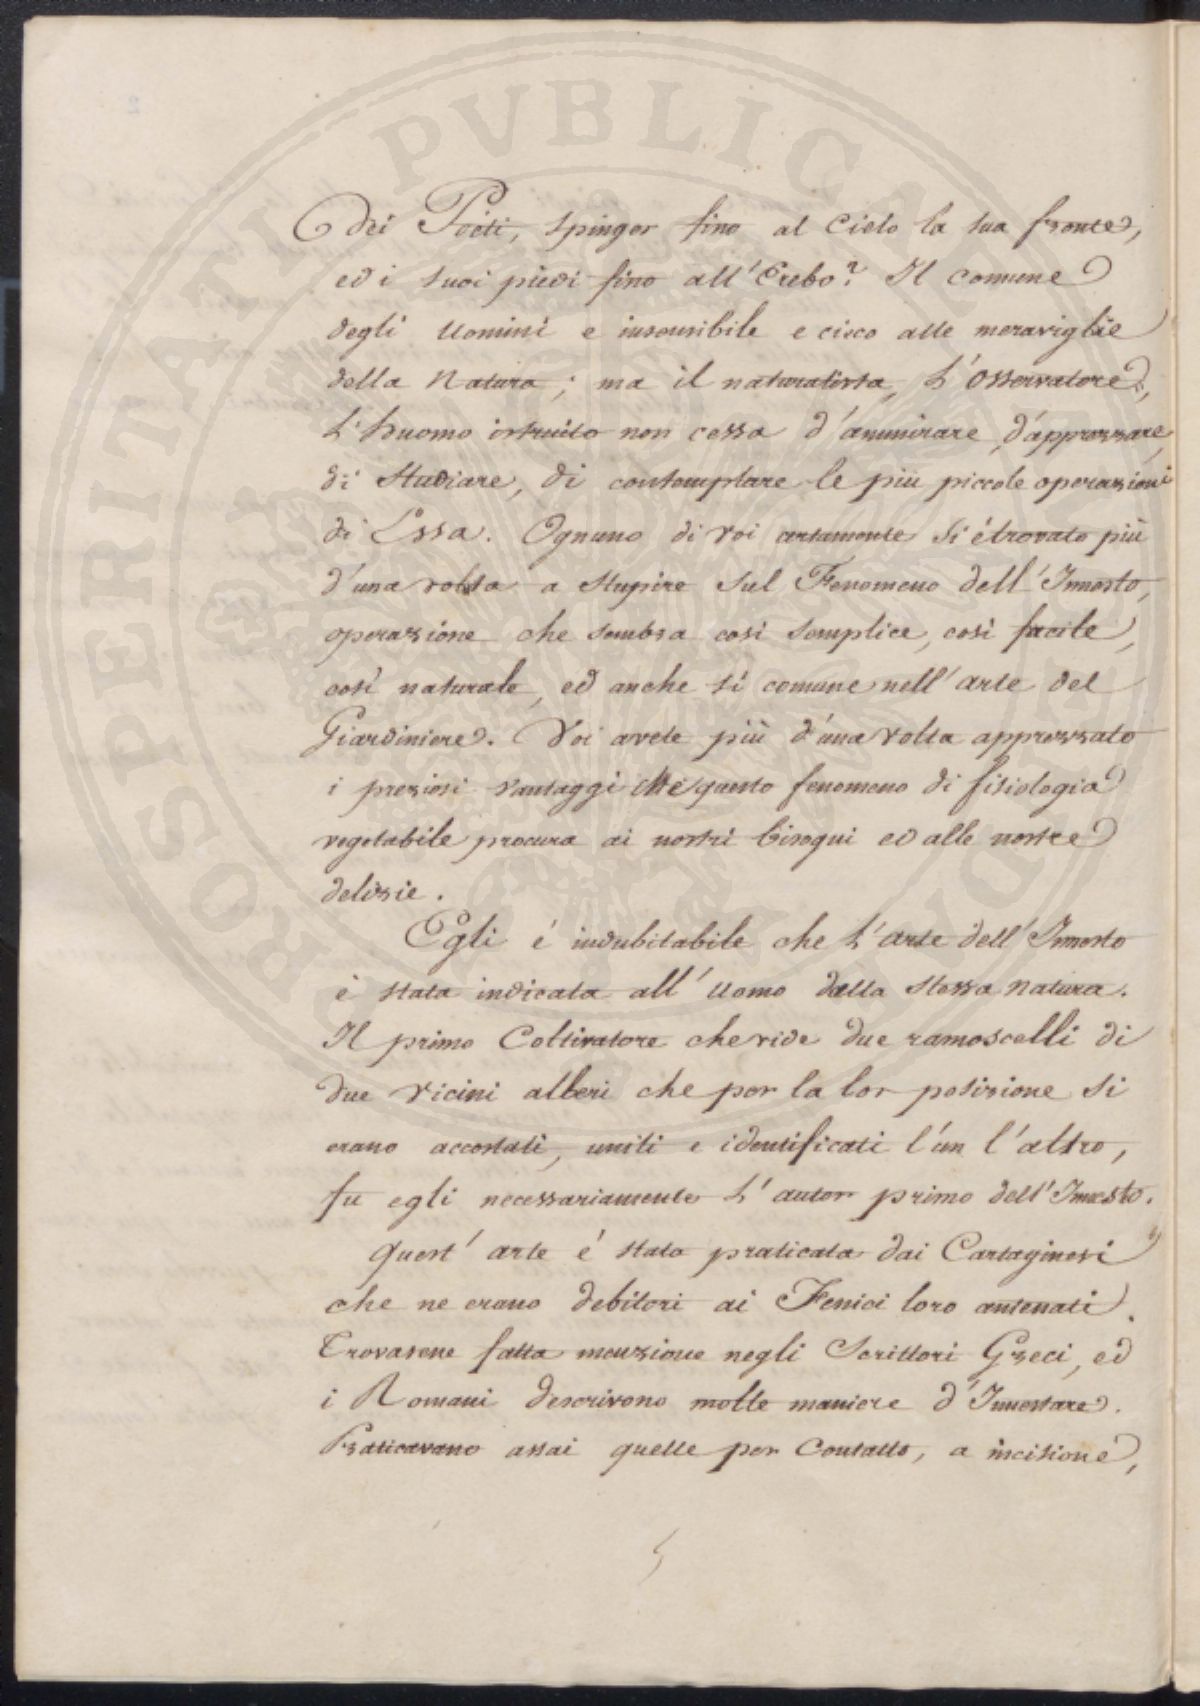 dei Poeti, spinger fino al Cielo la sua fronte,
ed i suoi piedi fino all'Erebo? Il comune
degli Uomini e insensibile e cieco alle meraviglie
della Natura; ma il naturalista, l'Osservatore,
l'huomo istruito non cessa d'ammirare, d'apprezzare,
di Studiare, di contemplare le più piccole operazioni
di Essa. Ognuno di Voi certamente si é trovato più
d'una volta a stupire sul Fenomeno dell'Innesto,
operazione che sembra cosi semplice, cosi facile,
cosi naturale, ed anche si comune nell'arte del
Giardiniere. Voi avete più d'una volta apprezzato
i preziosi vantaggi che questo fenomeno di fisiologia
vegetabile procura ai nostri bisogni ed alle nostre
delizie.
Egli é indubitabile che l'arte dell'Innesto
é stata indicata all'Uomo dalla stessa Natura.
Il primo Coltivatore che vide due ramoscelli di
due vicini alberi che per la lor posizione si
erano accostati, uniti e identificati l'un l'altro,
fu egli necessariamente l'autor primo dell'Innesto.
Quest'arte é stata praticata dai Cartaginesi
che ne erano debitori ai Fenici loro antenati.
Trovasene fatta menzione negli Scrittori Greci, ed
i Romani descrivono molte maniere d'Innestare.
Praticavano assai quelle per Contatto, a incisione,
PROSPERITATI PVBLICAE